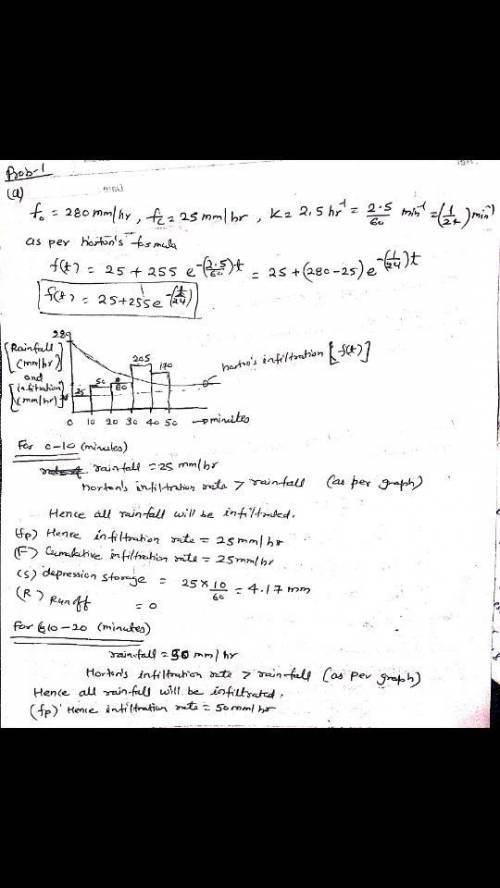 Prob-1
(a)
f₀ = 280 mm/hr, fc = 25 mm/hr, K = 2.5 hr⁻¹ = 2.5/60 min⁻¹ = (1/24) min⁻¹
as per Horton's formula
f(t) = 25 + 255 e^-(2.5/60)t = 25 + (280-25) e^-(1/24)t
f(t) = 25 + 255 e^-(t/24)
280
[Rainfall (mm/hr) and infiltration (mm/hr)]
25 50 80 205 170
Horton's infiltration [f(t)]
0 10 20 30 40 50 → minutes
For 0-10 (minutes)
rainfall = 25 mm/hr
Horton's infiltration rate > rainfall (as per graph)
Hence all rainfall will be infiltrated.
(fp) Hence infiltration rate = 25 mm/hr
(F) Cumulative infiltration rate = 25 mm/hr
(S) depression storage = 25 × 10/60 = 4.17 mm
(R) Runoff = 0
For 10-20 (minutes)
rainfall = 50 mm/hr
Horton's infiltration rate > rainfall (as per graph)
Hence all rainfall will be infiltrated.
(fp) Hence infiltration rate = 50 mm/hr